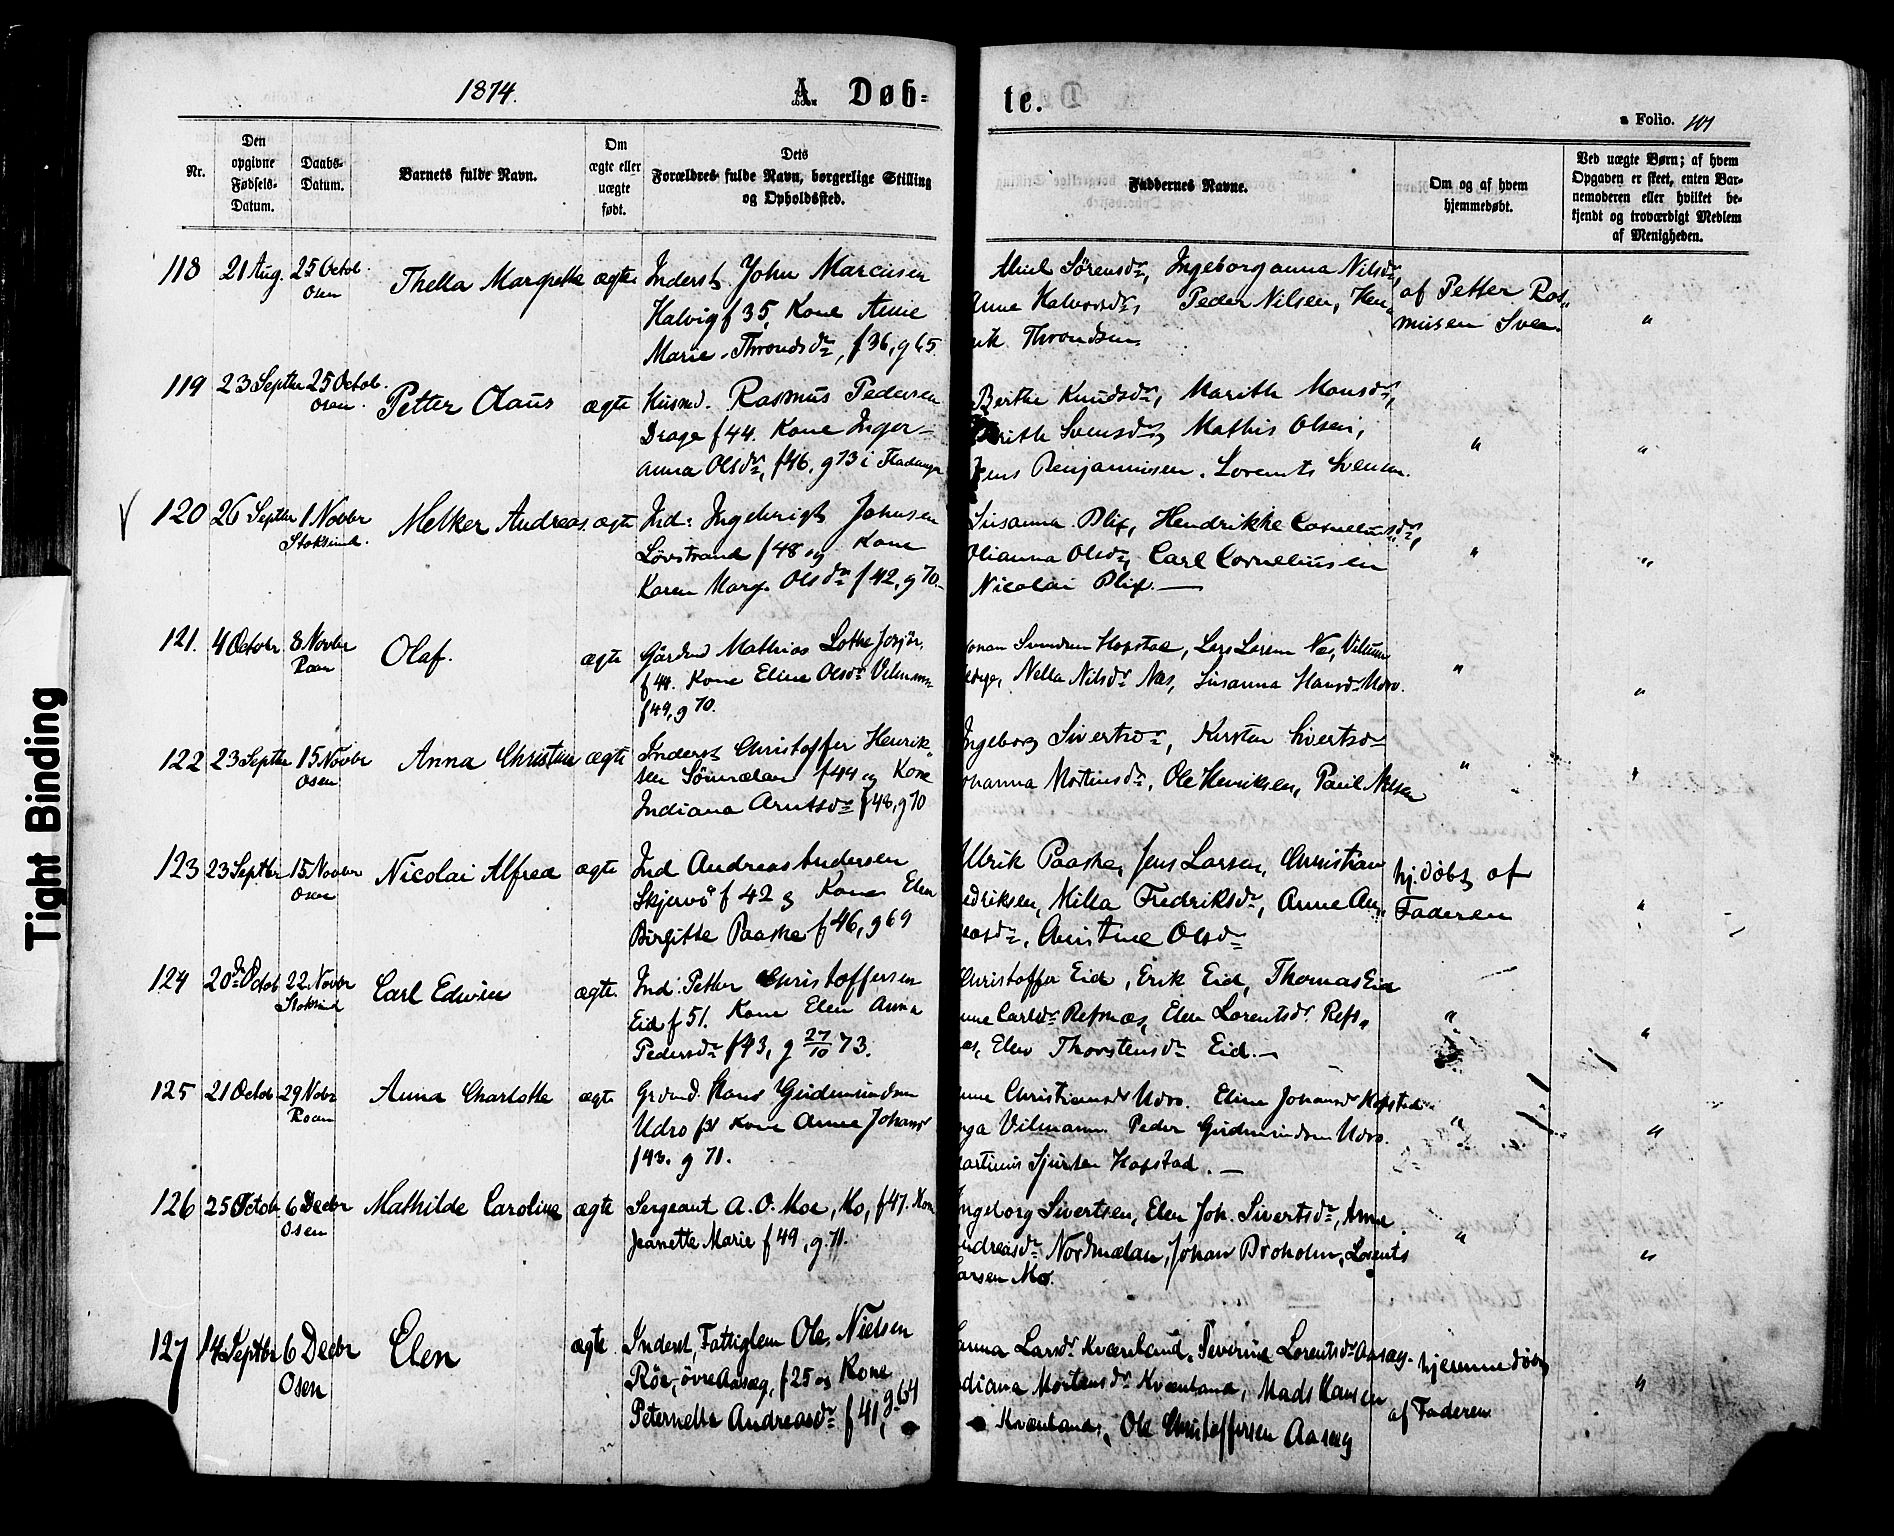 1874.
A. Døb-
te.
Folio. 101
Nr.
Den opgivne Fødsels-Datum.
Daabs-Datum.
Barnets fulde Navn.
Om ægte eller uægte født.
Dets Forældres fulde Navn, borgerlige Stilling og Opholdssted.
Faddernes Navne.
Om og af hvem hjemmedøbt.
Ved uægte Børn; af hvem Opgaven er skeet, enten Barnemoderen eller hvilket bekjendt og troværdigt Medlem af Menigheden.
118 21 Aug. 25 Octob. Osen Thella Margrethe ægte
Inderst John Marcusen
Halvig f 35, Kone Anne
Marie Throndsdr, f 36, g 65
Sørensdr, Ingeborganna Nilsdr,
Anne Halvorsdr, Peder Nilsen, Hen-
rik Throndsen
af Petter Ras-
musen Sven.
119 23 Septbr 25 Octob. Osen Petter Olaus ægte
Husmd. Rasmus Pedersen
Drage f 44. Kone Inger-
anna Olsdr, f 46, g 73 i Fladanger
Berthe Knudsdr, Marith Monsdr,
Svensdr, Mathis Olsen,
Jens Benjaminsen, Lorents Svensen.
120 26 Septbr 1 Novbr Stoksund. Melker Andreas ægte
Ind: Ingebrigt Johnsen
Lövstrand f 48 og Kone
Karen Marg. Olsdr f 42, g 70
Susanna Plix, Hendrikke Corneliusdr,
Olianna Olsdr, Carl Corneliussen
Nicolai Plix.
121. 4 Octobr 8 Novbr Roan Olaf. ægte
Gårdmd Mathias Lothe
f 44. Kone Eline Olsdr
f 49, g 70.
Hopstad, Lars Larsen Næs,
Nella Nilsdr Næs, Susanna Hansdr Udro.
122 23 Septbr 15 Novbr Osen Anna Christine ægte
Inderst Christoffer Henrik-
sen Sörmelan f 44 og Kone
Indiana Arntsdr f 48, g 70
Ingeborg Sivertsdr, Kirsten Sivertsdr
Johanna Mortensdr, Ole Henriksen, Paul Nilsen
123 23 Septbr 15 Novbr Osen Nicolai Alfred ægte
Ind Andreas Andersen
Skjervö f 42 og Kone Elen
Birgitte Paaske f 46, g 69
Ulrik Paaske, Jens Larsen, Christian
edriksen, Milla Fredriksdr, Anne An-
easdr, Christine Olsdr
hj. döbt af
Faderen
124 20 Octob 22 Novbr Stoksund Carl Edvin ægte.
Ind. Petter Christoffersen
Eid f 51. Kone Elen Anna
Pedersdr f 43, g 27/10 73.
Christoffer Eid, Erik Eid, Thomas Eid
Carlsdr Refsnæs, Elen Lorentsdr Refs-
æs, Elen Thorstensdr Eid.
125 21 Octob 29 Novbr Roan Anna Charlotte ægte
Grdmd. Hans Gudmundsen
Udro Kone Anne Johans
f 43. g 71.
Christiansdr Udro. Eline Johansdr Hopstad
Vilmann Peder Gudmundsen Udro.
Martinus Sjursen Hopstad.
126 25 Octob 6 Decbr Osen Mathilde Caroline ægte
Sergeant A. O. Moe, Mo, f 47. Kone
Jeanette Marie f 49, g 71.
Ingeborg Sivertsen, Elen Joh. Sivertsdr, Anne
Andreasdr Nordmelan, Johan Broholm, Lorents
Larsen Mo.
127 14 Septbr 6 Decbr Osen Elen ægte
Inderst, Fattiglem Ole Nielsen
Röe, övre Aasæg, f 25 og Kone
Peternelle Andreasdr f 41, g 64
Larsdr Kvænland, Severine Lorentsdr Aasæg.
Indiana Mortensdr Kvænland, Mads Hansen
Kvænland, Ole Christoffersen Aasæg
hjemmedöbt
af Faderen
Tight Binding